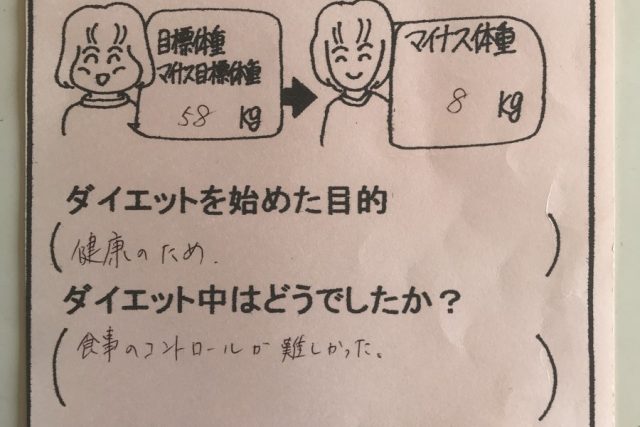 目標体重
マイナス目標体重
58 kg
マイナス体重
8 kg
ダイエットを始めた目的
(健康のため.)
ダイエット中はどうでしたか？
(食事のコントロールが難しかった。)